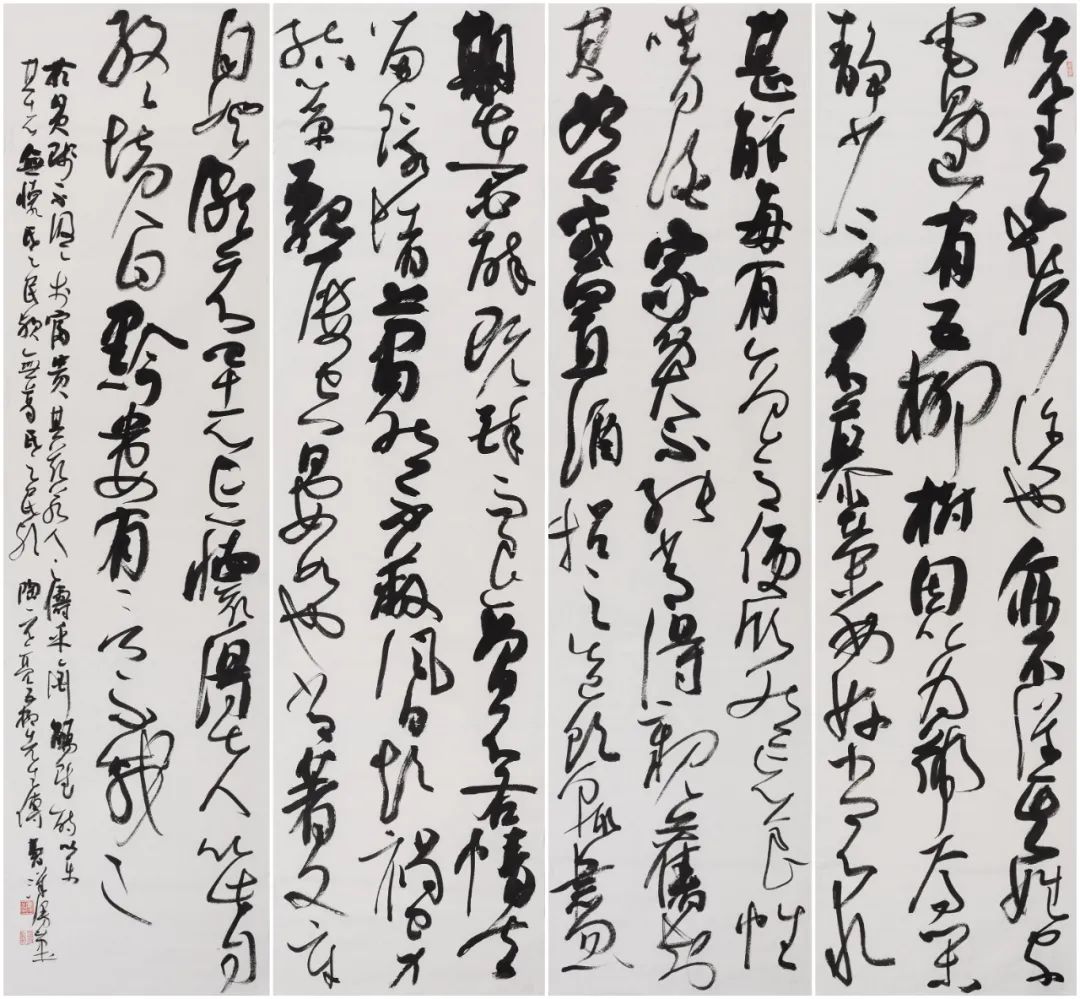 先生不知何許也亦不詳其姓字
宅邊有五柳樹因以為號焉閑
靜少言不慕榮利好讀書不求
甚解每有會意便欣然忘食性
嗜酒家貧不能常得親舊知
其如此或置酒招之造飲輒盡
期在必醉既醉而退曾不吝情去
留環堵蕭然不蔽風日短褐穿
結簞瓢屢空晏如也常著文章
自娛頗示己志忘懷得失以此自
終 曰黔婁有言不戚
於貧賤不汲汲於富貴其言茲若人之儔乎銜觴賦詩以樂
其志無懷氏之民歟 氏之民歟 陶 五柳先生傳